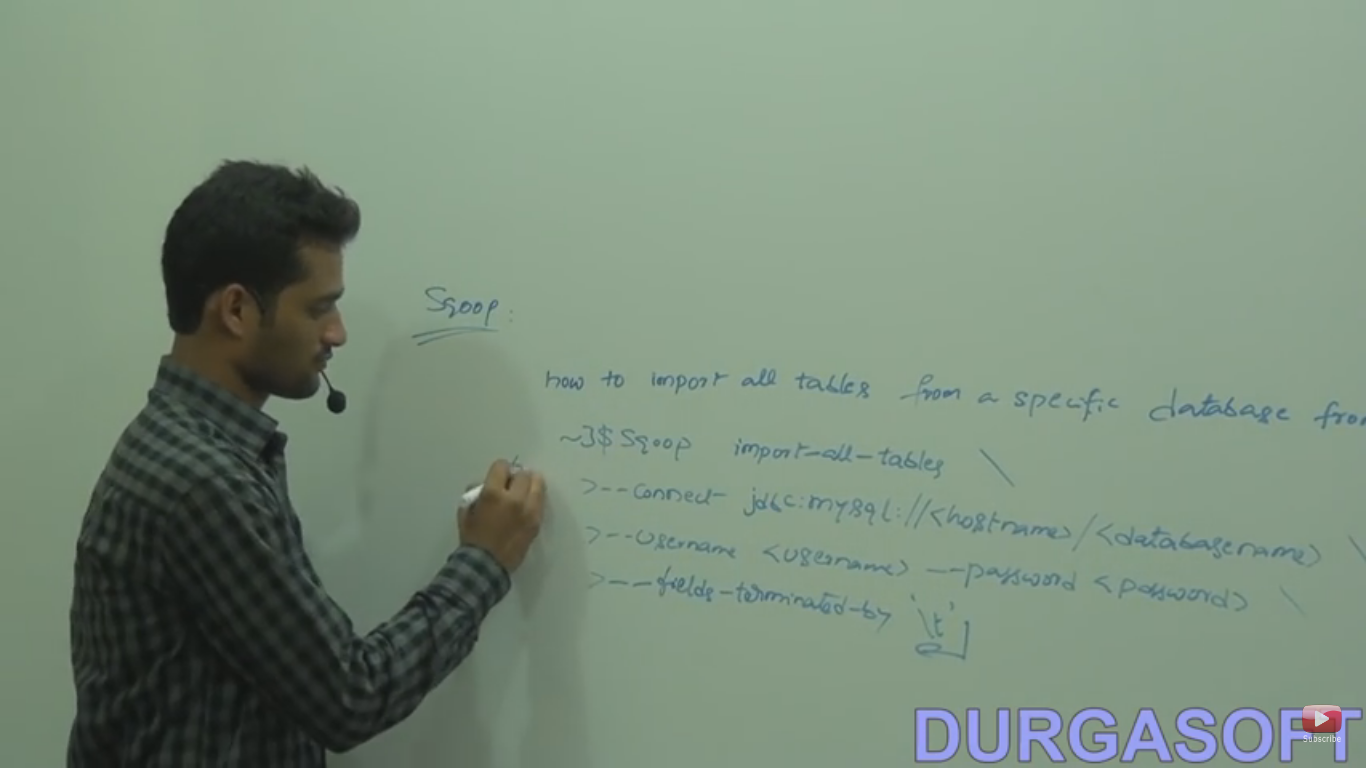 Sqoop :
how to import all tables from a specific database from
~]$ Sqoop import-all-tables \
>--connect jdbc:mysql://<hostname>/<databasename> \
>--username <username> --password <password> \
>--fields-terminated-by '\t'
DURGASOFT
Subscribe